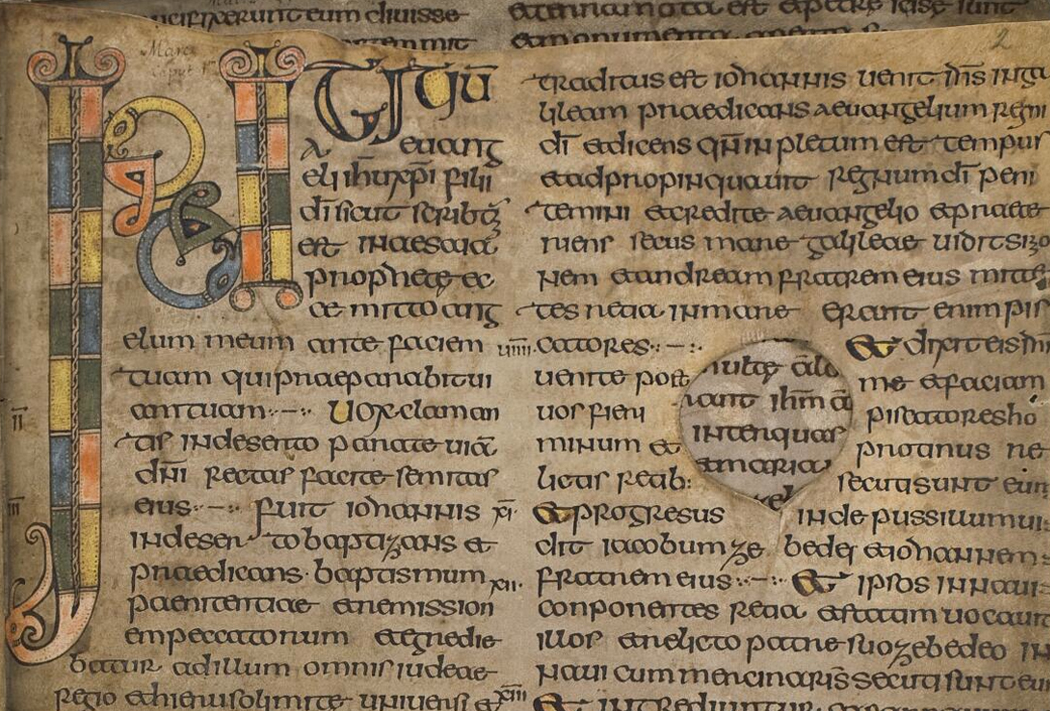 Marci
caput
2
INITIŪ
euang
eli ihuxp̄i filii
di sicut scribtū
est in aesaia
prophetę ec
ce mitto ang
elum meum ante faciem
tuam qui praeparabitui
ant uam uox claman
tis in deserto parate uiā
dñi rectas facite semitas
eius fuit iohannis
in deser to baptizans et
praedicans baptismum
paenitentiae in remission
em peccatorum et egredie
batur ad illum omnis iudeae
regio et hierusolimite uniuersi et
traditus est iohannis uenit dñs inga
lileam praedicans aeuangelium regni
dī et dicens qñ inpletum est tempus
et adpropinquauit regnum dī peni
temini et credite aeuangelio et praete
riens secus mare galileae uidit simo
nem et andream fratrem eius mitte
tes retia in mare erant enim pis
uiiii. catores et dixit eis iħs
uenite post me et faciam
uos fieri piscatores ho
minum et protinus re
lictis retib: secuti sunt eum
xi et progresus inde pussillum ui
dit iacobum ze bedei et iohannem
xii. fratrem eius et ipsos in naui
conponentes retia et statim uocauit
illos et relicto patre suo zebedeo in
naui cum mercinariis secuti sunt eum
xiii et ingrediuntur